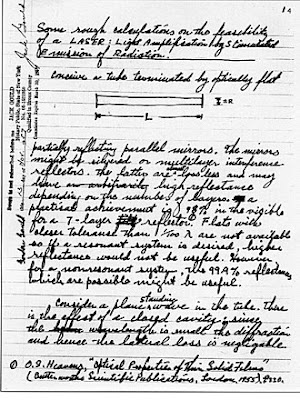 1.
Some rough calculations on the feasibility
of a LASER: Light Amplification by Stimulated
Emission of Radiation.
Conceive a tube terminated by optically flat
L
partially reflecting parallel mirrors. The mirrors
might be silvered or multilayer interference
reflectors. The latter are lossless and may
have high reflectance
depending on the number of layers. A
practical achievement is 98% in the visible
for a 7-layer reflector. Flats with
closer tolerance than 1/100 λ are not available
so if a resonant system is desired, higher
reflectance would not be useful. However
for a nonresonant system, the 99.9% reflectances
which are possible might be useful.
Consider a plane standing wave in the tube. There
is the effect of a closed cavity; since
the wavelength is small the diffraction
and hence the lateral loss is negligable.
O.S. Heavens, "Optical Properties of Thin Solid Films"
(Butterworths Scientific Publications, London, 1955), p220.
JACK GOULD
Notary Public, State of New York